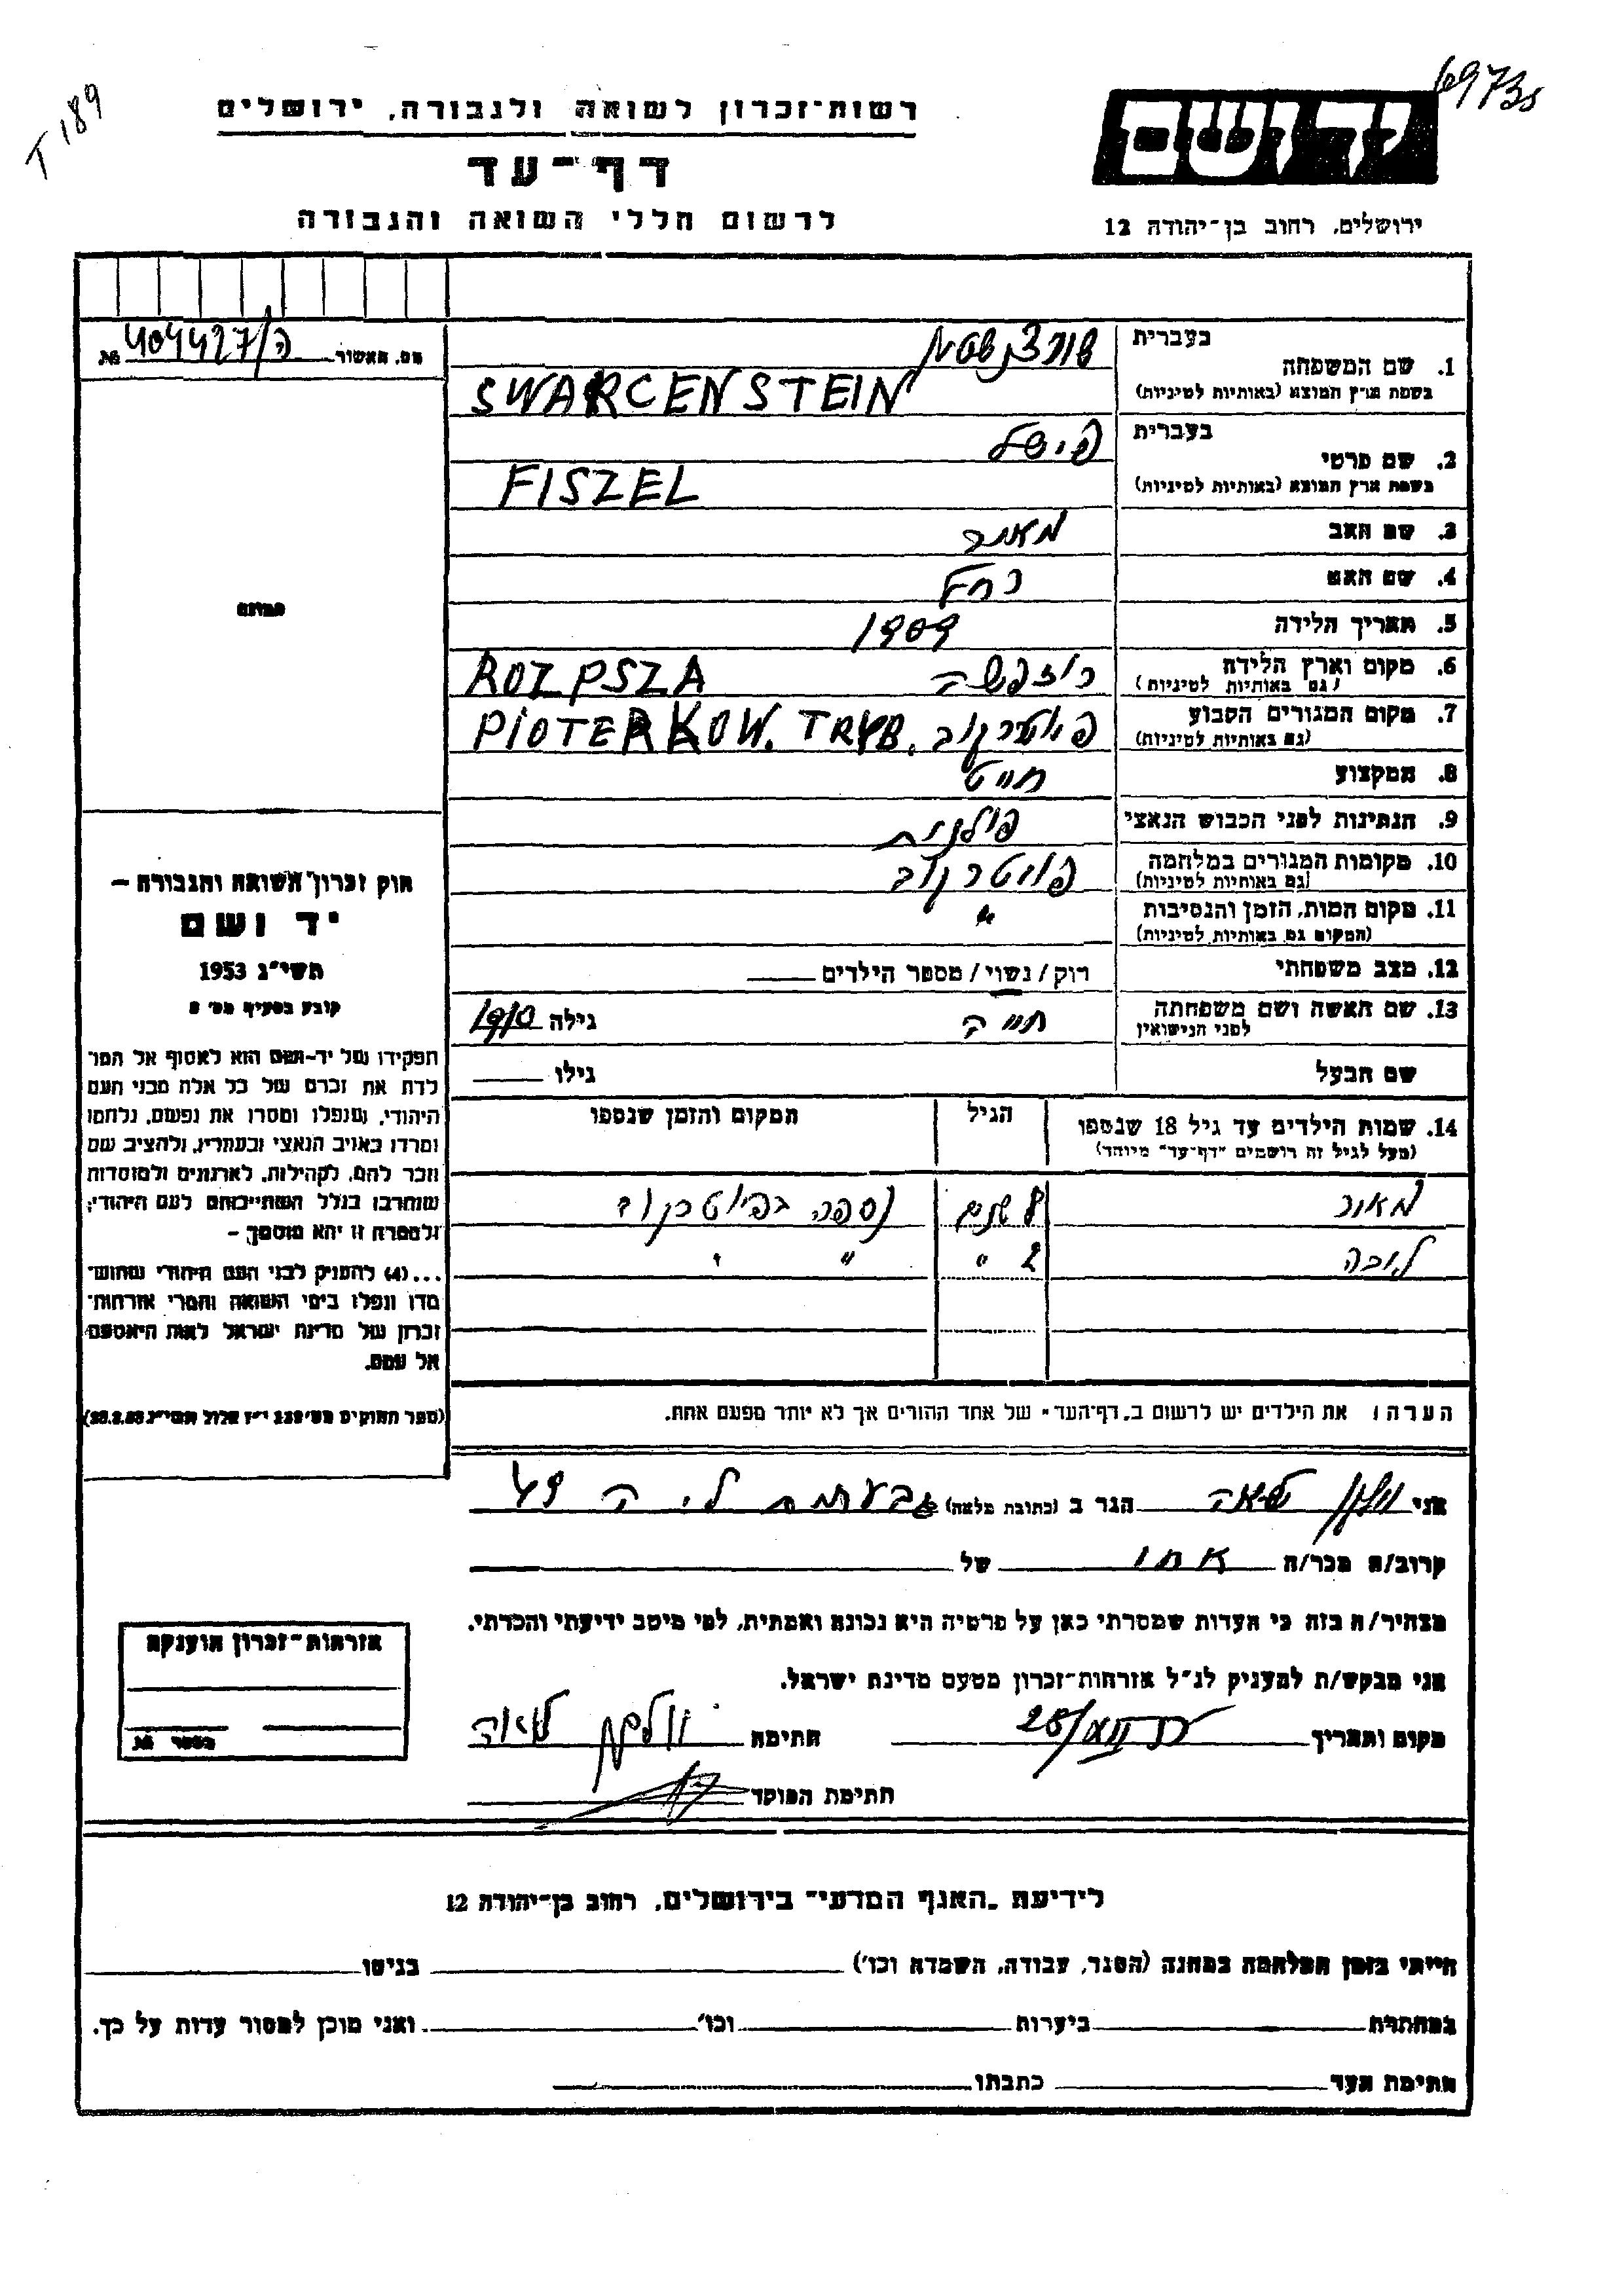 T 189
69735
רשות־זכרון לשואה ולגבורה, ירושלים
דף־עד
לרשום חללי השואה והגבורה
יד ושם
ירושלים, רחוב בן־יהודה 12
מס. האשור 404427/ה №
1. שם המשפחה בעברית
בשפת ארץ המוצא (באותיות לטיניות) SWARCENSTEIN
2. שם פרטי בעברית פישל
בשפת ארץ המוצא (באותיות לטיניות) FISZEL
3. שם האב מאיר
4. שם האם רחל
5. תאריך הלידה 1909
6. מקום וארץ הלידה רוזפשה ROZPSZA
(גם באותיות לטיניות)
7. מקום המגורים הקבוע פיוטרקוב PIOTERKOW. TRYB.
(גם באותיות לטיניות)
8. המקצוע חייט
9. הנתינות לפני הכבוש הנאצי פולנית
10. מקומות המגורים במלחמה פיוטרקוב
(גם באותיות לטיניות)
11. מקום המות, הזמן והנסיבות "
(המקום גם באותיות לטיניות)
12. מצב משפחתי רוק/נשוי/מספר הילדים
13. שם האשה ושם משפחתה חייה גילה 1910
לפני הנישואין
שם הבעל גילו
14. שמות הילדים עד גיל 18 שנספו הגיל המקום והזמן שנספו
(מעל לגיל זה רושמים "דף־עד" מיוחד)
מאיר 8 שנים נספה בפיוטרקוב
2 " " "
הערה: את הילדים יש לרשום ב„דף־העד" של אחד ההורים אך לא יותר מפעם אחת.
תמונה
חוק זכרון השואה והגבורה –
יד ושם
תשי"ג 1953
קובע בסעיף מס' 2
תפקידו של יד־ושם הוא לאסוף אל המו־
לדת את זכרם של כל אלה מבני העם
היהודי, שנפלו ומסרו את נפשם, נלחמו
ומרדו באויב הנאצי ובעוזריו, ולהציב שם
וזכר להם, לקהילות, לארגונים ולמוסדות
שנחרבו בגלל השתייכותם לעם היהודי;
ולמטרה זו יהא מוסמך –
...(4) להעניק לבני העם היהודי שהוש־
מדו ונפלו בימי השואה והמרי אזרחות־
זכרון של מדינת ישראל לאות היאספם
אל עמם.
אני הגר ב (כתובת מלאה) גבעתיים
קרוב/ה מכר/ה אחו של
מצהיר/ה בזה כי העדות שמסרתי כאן על פרטיה היא נכונה ואמתית, לפי מיטב ידיעתי והכרתי.
אני מבקש/ת להעניק לנ"ל אזרחות־זכרון מטעם מדינת ישראל.
מקום ותאריך חתימה
חתימת הפוקד
אזרחות־זכרון הוענקה
מספר №
לידיעת „האגף המדעי" בירושלים, רחוב בן־יהודה 12
הייתי בזמן המלחמה במחנה (הסגר, עבודה, השמדה וכו') בגיטו
במחתרת ביערות וכו' ואני מוכן למסור עדות על כך.
חתימת העד כתבתו